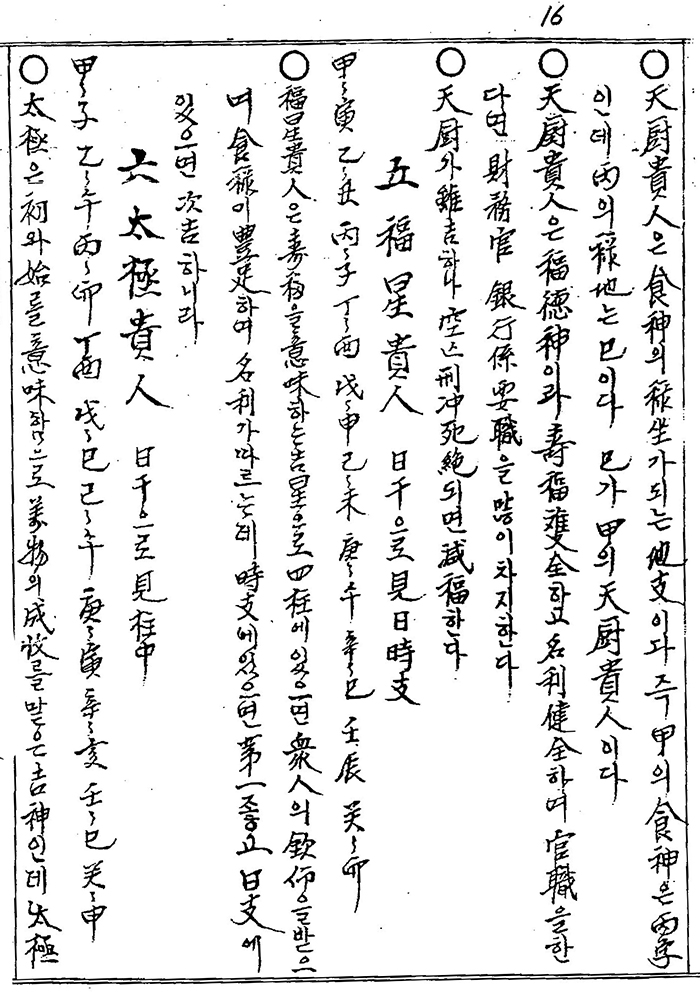 16
○天廚貴人은 食神의 祿坐가 되는 地支이다 즉 甲의 食神은 丙字
인데 丙의 祿地는 巳이다 巳가 甲의 天廚貴人이다
○天廚貴人은 福德神이라 壽福雙全하고 名利健全하며 官職을 한
다면 財務官 銀行係 要職을 많이 차지한다
○天廚가 雖吉하나 空亡 刑冲 死絶되면 減福한다
五 福星貴人 日干으로 見日時支
甲〻寅 乙〻丑 丙〻子 丁〻酉 戊〻申 己〻未 庚〻午 辛〻巳 壬辰 癸〻卯
○福星貴人은 壽福을 意味하는 吉星으로 四柱에 있으면 衆人의 欽仰을 받으
며 食祿이 豊足하며 名利가 따르는데 時支에 있으면 第一 좋고 日支에
있으면 次吉하니라
六 太極貴人 日干으로 見柱中
甲〻子 乙〻午 丙〻卯 丁酉 戊〻巳 己〻午 庚〻寅 辛〻亥 壬〻巳 癸〻申
○太極은 初와 始를 意味함으로 萬物의 成收를 맡은 吉神인데 太極